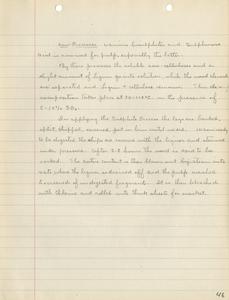 New Processes various bisulphites and sulphurous
acid is removed for pulp, especially the latter.
By these processes the soluble non-celluloses and a
slight amount of lignin go into solution, while the wood elements
are separated and lignin + cellulose remain. This
takes place at 110-115°C. in the presence of
SO2.
In applying the Sulphite Process the logs are barked,
split, chipped, screened, put in bins until needed.
to be digested the chips are covered with the liquor and steamed
under pressure. After hours the wood is said to be
cooked. The entire content is then blown out by steam into
vats where the liquor is drained off and the pulp washed
and screened of undigested fragments. It is then bleached
with chlorine and rolled into thick sheets for market.
46